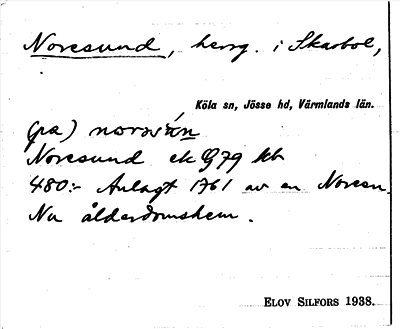 Noresund, herrg. i Skarbol,
Köla sn, Jösse hd, Värmlands län.
(på) norsùn
Noresund ek G79 kb
480:- Anlagt 1761 av en Noreen.
Nu ålderdomshem.
ELOV SILFORS 1938.